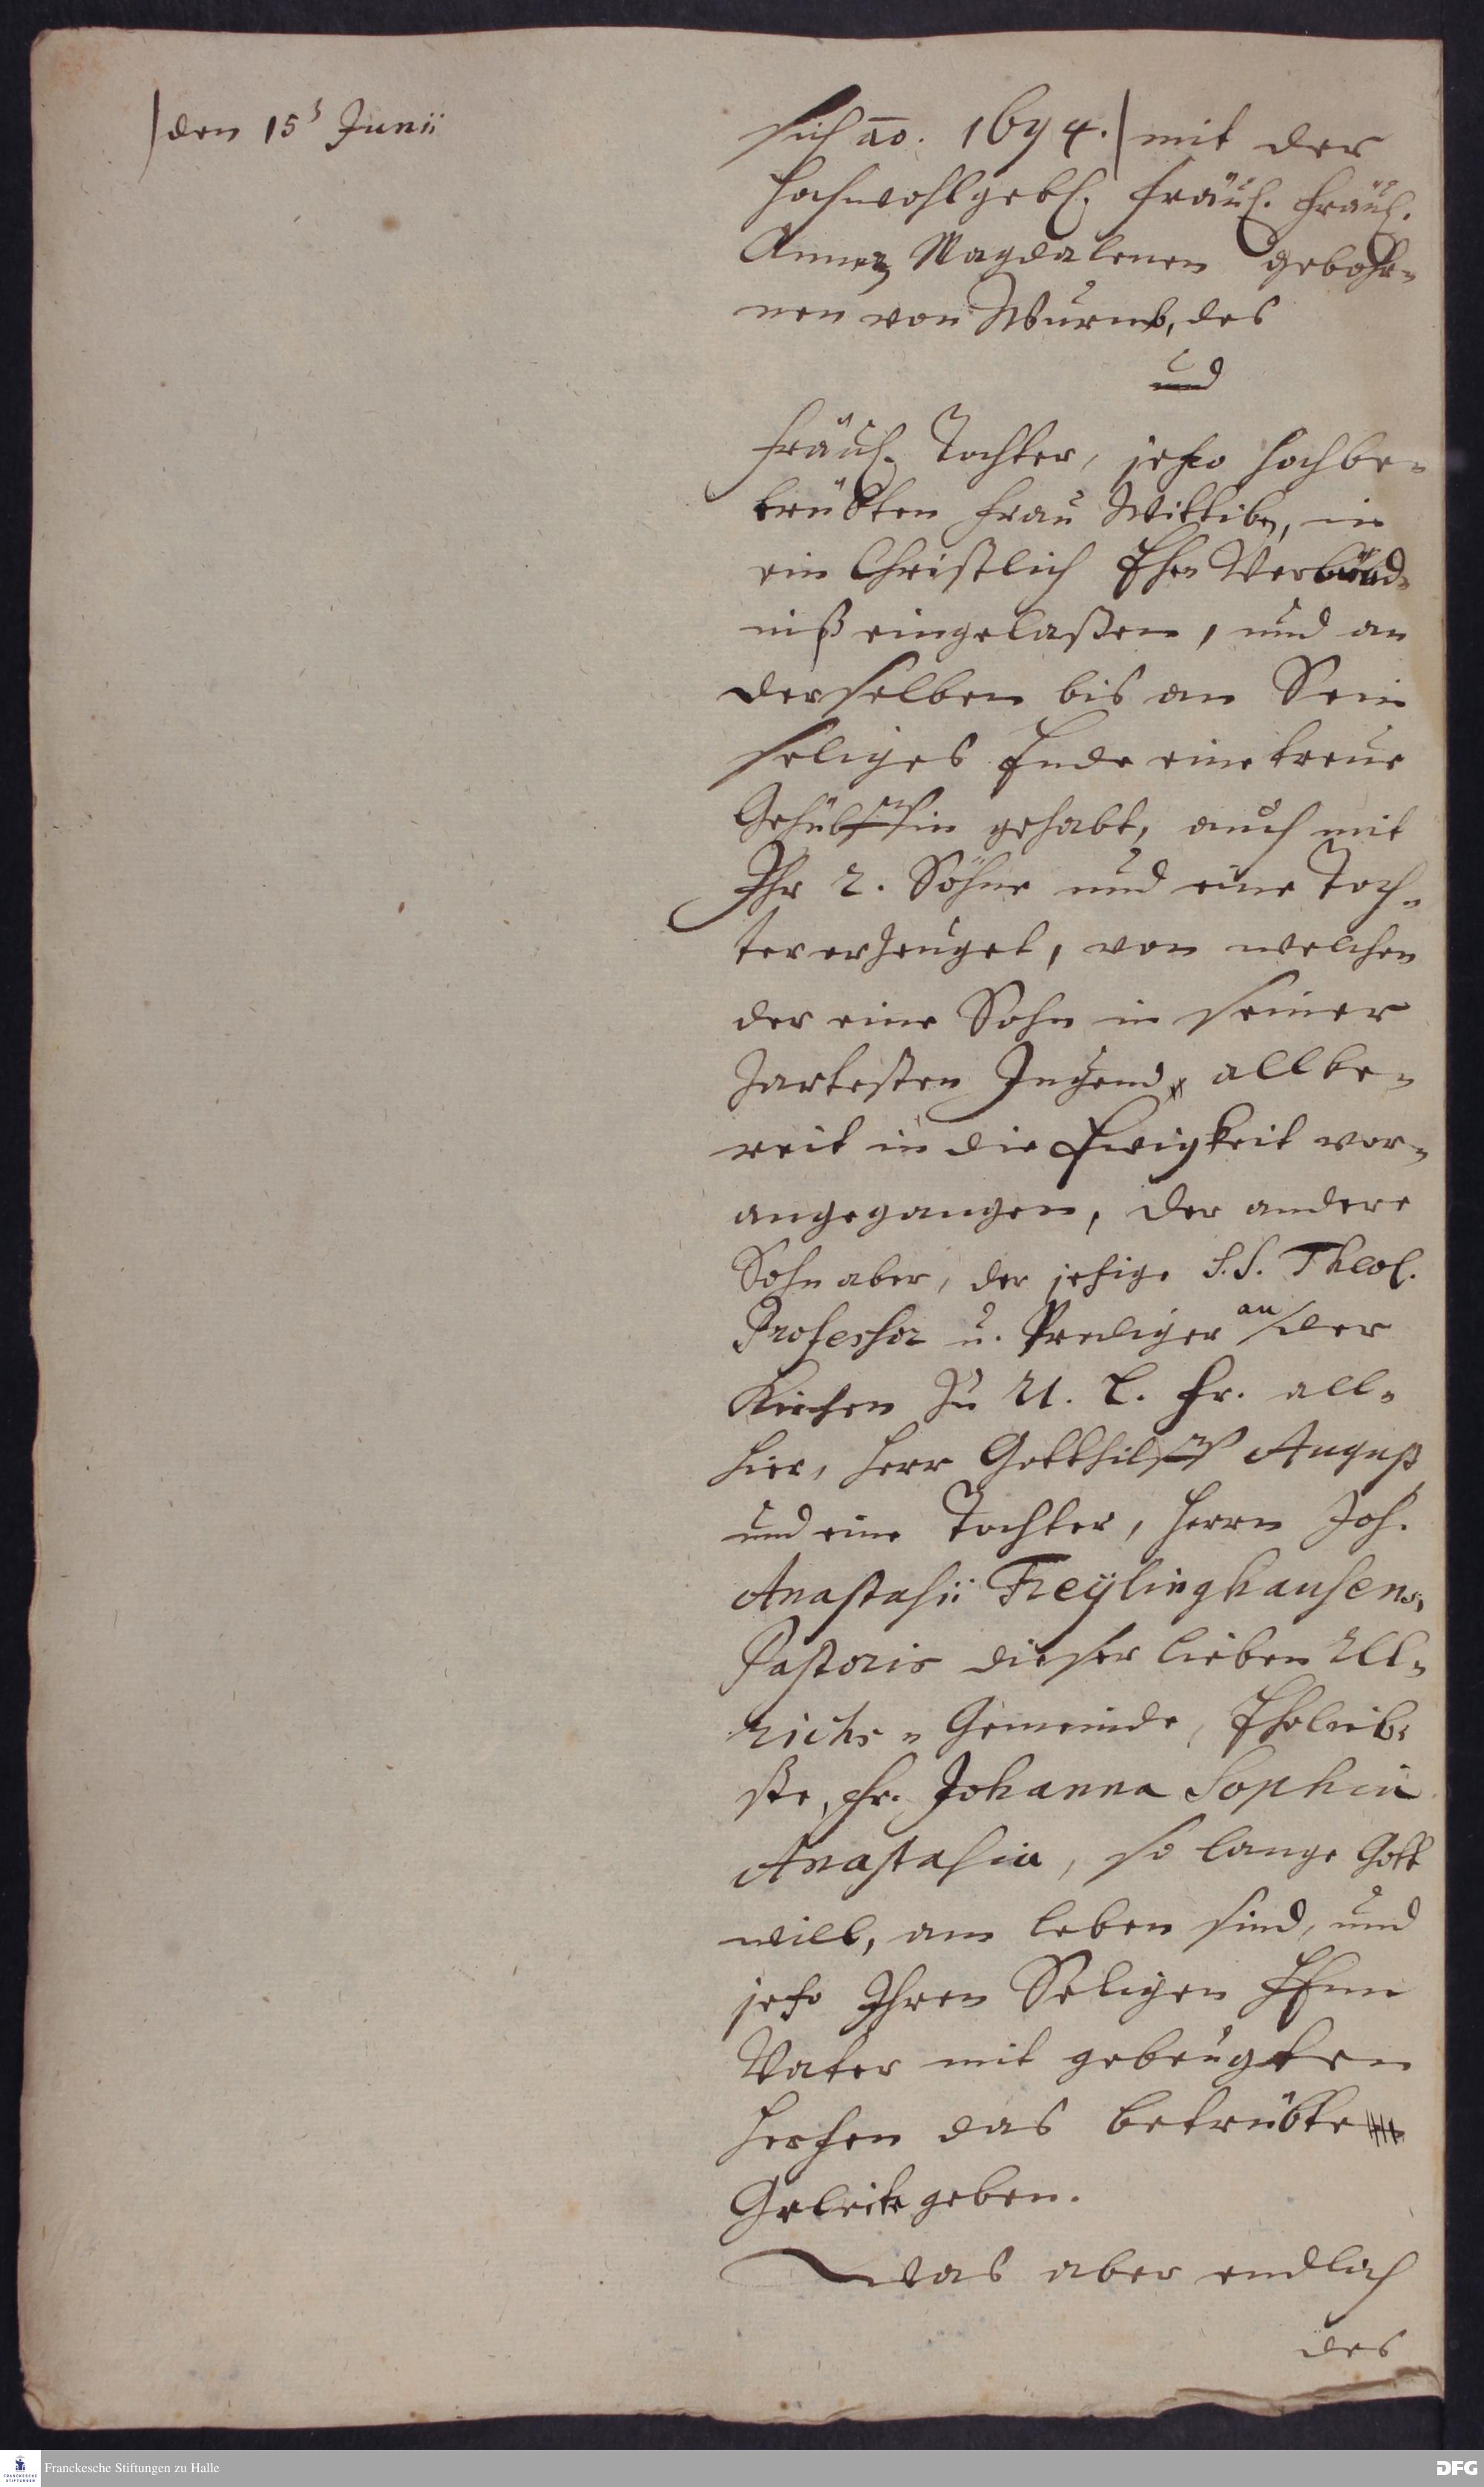 den 15 Junii
sich ao. 1694. mit der
hochwohlgebh. Fräul. Fräul.
Annen Magdalenen gebohr-
nen von Wurmb, des
und
Fräul. Tochter, jetzo hochbe-
trübten Frau Wittiben, in
ein Christlich Ehe Verbünd-
niß eingelaßen, und an
derselben bis an Sein
seliges Ende eine treue
Gehülffin gehabt, auch mit
Ihr 2. Söhne und eine Toch-
ter erzeuget, von welchen
der eine Sohn in seiner
zartesten Jugend allbe-
reit in die Ewigkeit vor-
angegangen, der andere
Sohn aber, der jetzige S.S. Theol.
Professor u. Prediger an der
Kirchen zu U. L. Fr. all-
hier, Herr Gotthilff August
und eine Tochter, Herrn Joh.
Anastasii Freylinghausens,
Pastoris dieser lieben Ull-
richs-Gemeinde, Eheleib-
ste, Fr. Johanna Sophia
Anastasia, so lange Gott
will, am leben sind, und
jetzo Ihren Seligen Herrn
Vater mit gebeugten
Hertzen das betrübte
Geleite geben.
Was aber endlich
des
Franckesche Stiftungen zu Halle
DFG